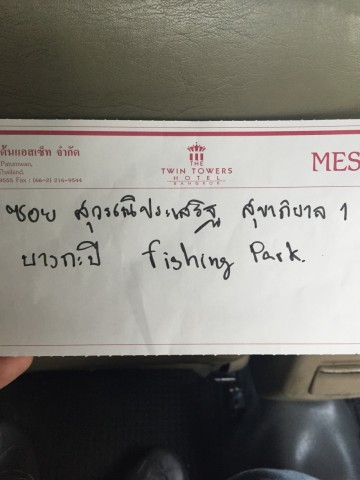 ต้นแอสเซ็ท จำกัด
Thailand.
Fax : (66-2) 216-9544
THE
TWIN TOWERS
HOTEL
BANGKOK
MES
ซอย สุวรรณประเสริฐ สุขาภิบาล 1
บางกะปิ fishing Park.